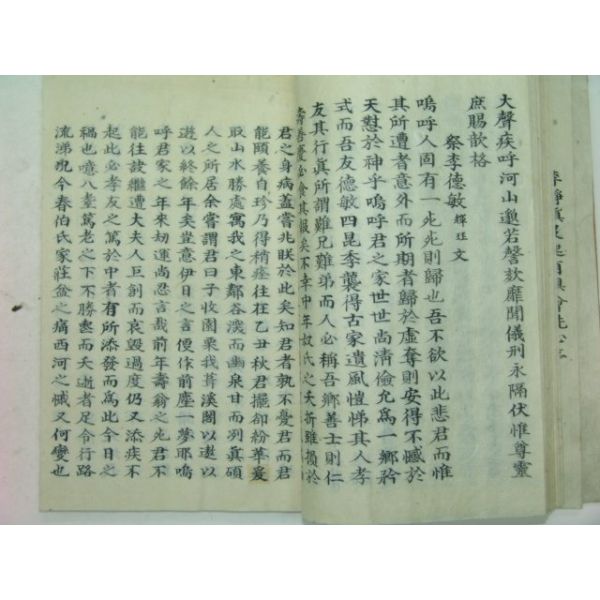 大聲疾呼河山邈若謦欬靡聞儀刑永隔伏惟尊靈
庶賜歆格
祭李德敏輝廷文
嗚呼人固有一死死則歸也吾不欲以此悲君而惟
其所遭者意外而所期者歸於虛奪則安得不憾於
天懟於神乎嗚呼君之家世世尚清儉允爲一鄉矜
式而吾友德敏四昆季襲得古家遺風愷悌其人孝
友其行眞所謂難兄難弟而人必稱吾鄉善士則仁
壽吾慶必食其報矣不幸中年叔氏之夭折雖損於
君之身病蓋嘗兆朕於此矣知君者孰不憂君而君
能頤養自珍乃得稍痊往在乙丑秋君擺却紛華爰
取山水勝處寓我之東鄰谷溪而幽泉甘而冽眞碩
人之所居余嘗謂君曰子收園栗我葺溪閣以遨以
遊以終餘年矣豈意伊日之言便作前塵一夢耶嗚
呼君家之年來刼運尚忍言哉前年壽翁之死君不
能往護繼遭大夫人巨創而哀毁過度仍又添疾不
起此必孝友之篤於中者有所添發而爲此今日之
禍也噫八耋篤老之下不勝悲而夭逝者足令行路
流涕況今春伯氏家莊盆之痛西河之慽又何變也